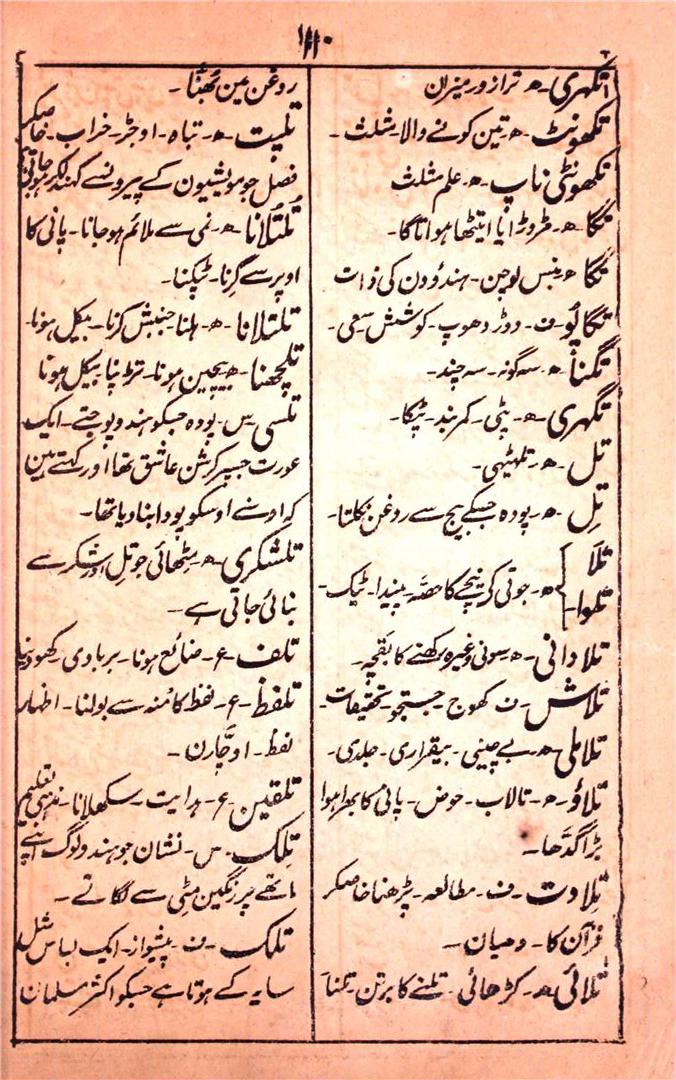 ۱۱۰
تکہری۔ ھ۔ ترازو۔ میزان
تکھونٹ۔ ھ۔ تین کونے والا۔ مثلث۔
تکھونٹی ناپ۔ ھ۔ علم مثلث
تگا۔ ھ۔ مڑوڑا یا اینٹھا ہوا تاگا۔
تگا۔ ھ۔ بنس لوچن۔ ہندوؤن کی ذات
تگاپو۔ ف۔ دوڑ دھوپ۔ کوشش سعی۔
تگنا۔ ھ۔ سہ گونہ۔ سہ چند۔
تگہری۔ ھ۔ پٹی۔ کمر بند۔ پٹکا۔
تل۔ ھ۔ تلہٹیہی۔
تِل۔ ھ۔ پودہ جسکے بیج سے روغن نکلتا۔
تلا
تلوا۔ ھ۔ جوتی کے نیچے کا حصّہ۔ پیندا۔ ٹیک۔
تلادانی۔ ھ۔ سوئی وغیرہ رکھنے کا بقچہ۔
تلاش۔ ف۔ کھوج۔ جستجو۔ تحقیقات۔
تلاملی۔ ھ۔ بے چینی۔ بیقراری۔ جلدی۔
تلاؤ۔ ھ۔ تالاب۔ حوض۔ پانی کا بھرا ہوا
بڑا گڈھا۔
تلاوت۔ ف۔ مطالعہ۔ پڑھنا خاصکر
قرآن کا۔ دھیان۔
تلائی۔ ھ۔ کڑھائی۔ تلنے کا برتن۔ تلنا
روغن مین بُھنّا۔
تلپت۔ ھ۔ تباہ۔ اوجڑ۔ خراب۔ خاصکر
فصل جو مویشیون کے پیرونسے کھندلکر ہو جاتی
تلتلانا۔ ھ۔ نمی سے ملائم ہو جانا۔ پانی کا
اوپر سے گرنا۔ ٹپکنا۔
تلتلانا۔ ھ۔ ہلنا جنبش کرنا۔ بیکل ہونا۔
تلچھنا۔ ھ۔ بیچین ہونا۔ تڑپنا بیکل ہونا
تلسی۔ س۔ پودہ جسکو ہندو پوجتے۔ ایک
عورت جسپر کرشن عاشق تھا اور کہتے ہین
کہ اوسنے اوسکو پودا بنا دیا تھا۔
تلشکری۔ ھ۔ مٹھائی جو تل اور شکر سے
بنائی جاتی ہے۔
تلف۔ ع۔ ضائع ہونا۔ بربادی۔ کھو دینا
تلفظ۔ ع۔ لفظ کا مُنہ سے بولنا۔ اظہار
لفظ۔ اوچّارن۔
تلقین۔ ع۔ ہدایت۔ سکھلانا۔ مذہبی تعلیم
تِلک۔ س۔ نشان جو ہندو لوگ اپنے
ماتھے پر رنگین مٹی سے لگاتے۔
تلک۔ ف۔ پیشواز۔ ایک لباس مثل
سایہ کے ہوتا ہے جسکو اکثر مسلمان